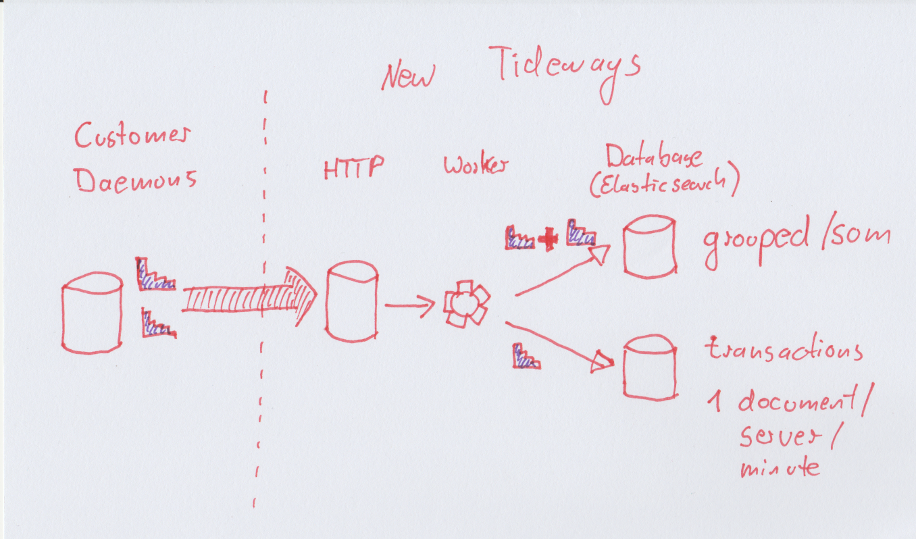 New Tideways
Customer
Daemons
HTTP
Worker
Database
(Elasticsearch)
grooped/som
transactions
1 document/
server/
minute